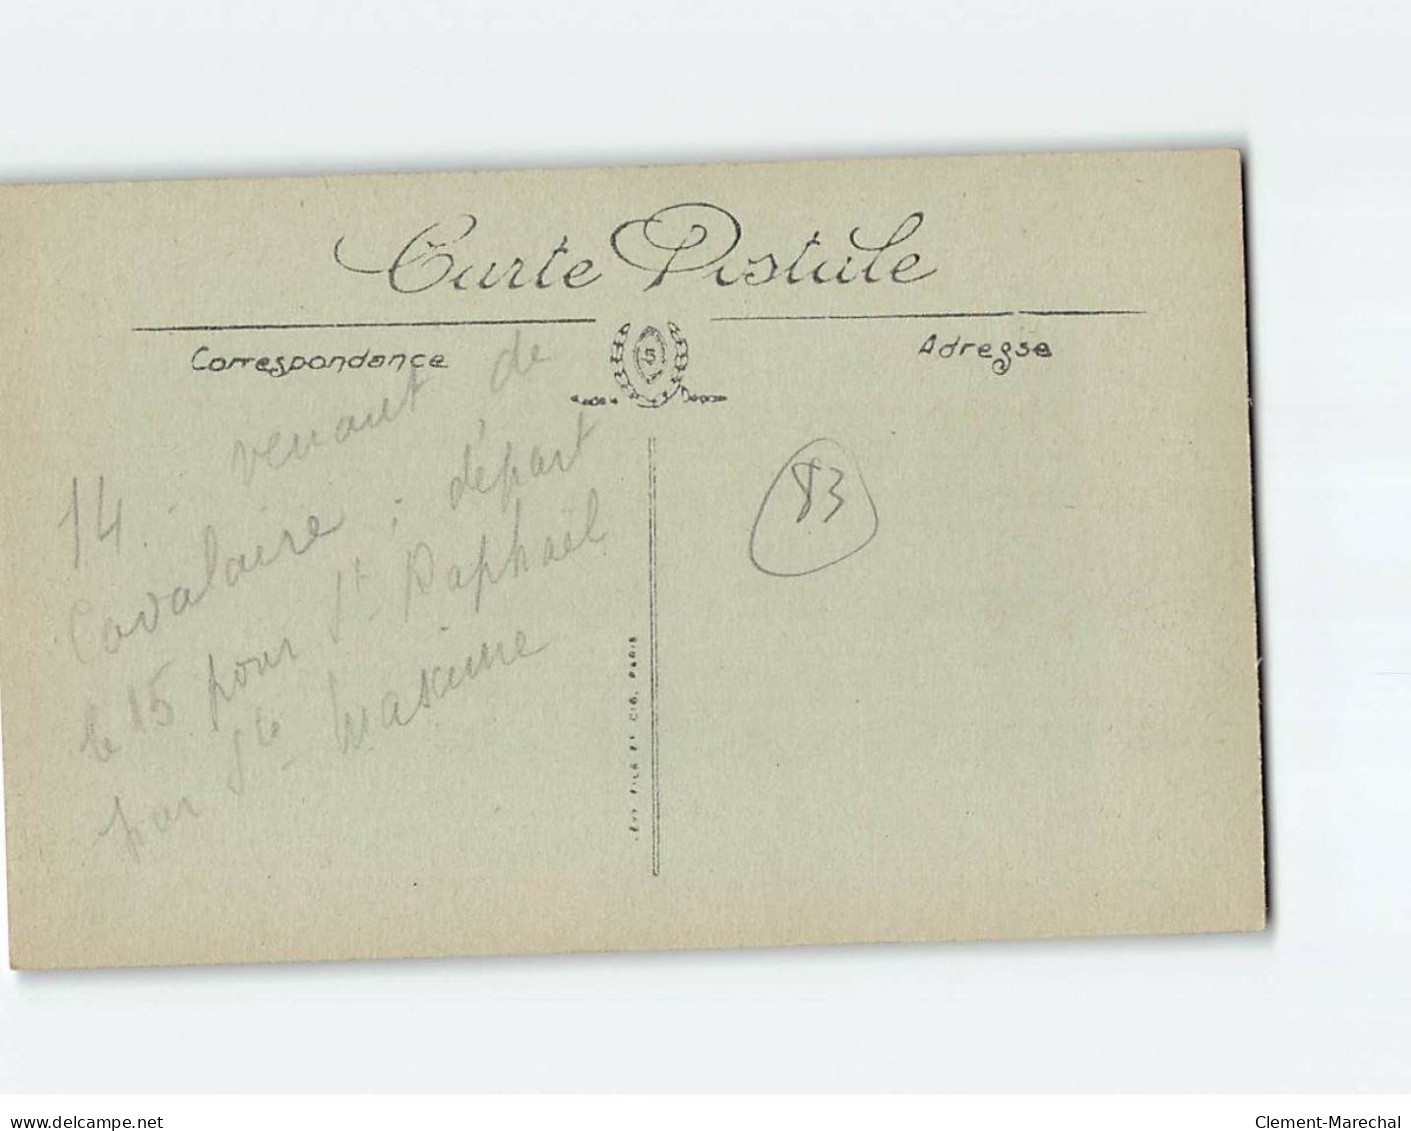 Carte Postale
Correspondance
Adresse
14. venant de
Cavalaire ; départ
le 15 pour St Raphaël
par Ste Maxime
83
LEVY FILS ET CIE, PARIS
www.delcampe.net
Clement-Marechal